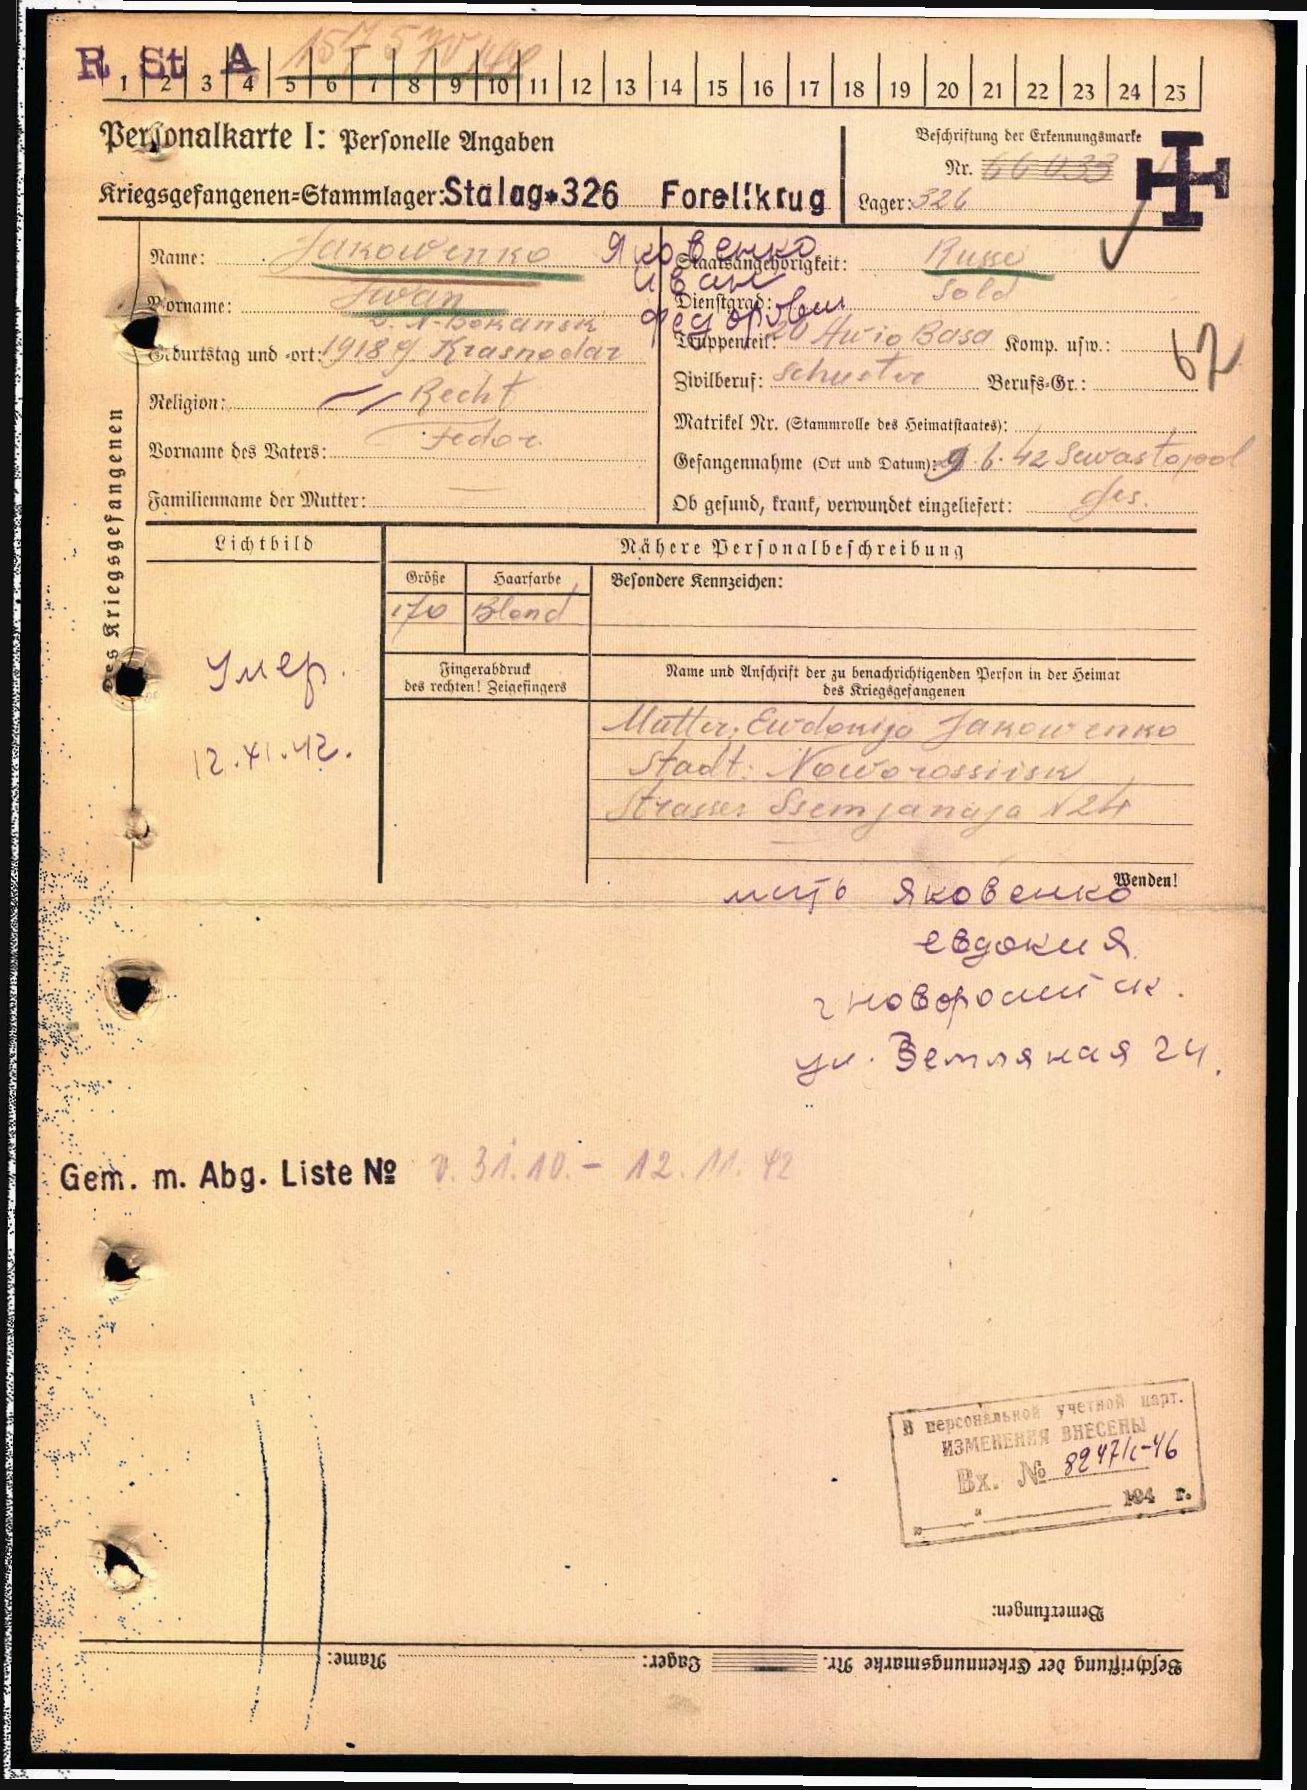 R St A
1 2 3 4 5 6 7 8 9 10 11 12 13 14 15 16 17 18 19 20 21 22 23 24 25
Personalkarte I: Personelle Angaben
Kriegsgefangenen=Stammlager: Stalag 326 Forellkrug
Beschriftung der Erkennungsmarke
Nr. 66033
Lager: 326
des Kriegsgefangenen
Name: Jakowenko
Яковенко
Vorname: Iwan
Иван
Федорович
Geburtstag und =ort: 1918 Krasnodar
Religion: Recht
Vorname des Vaters: Fedor
Familienname der Mutter: —
Staatsangehörigkeit: Russe
Dienstgrad: Sold
Truppenteil: 20 Awio Basa Komp. usw.:
62
Zivilberuf: Schuster Berufs=Gr.:
Matrikel Nr. (Stammrolle des Heimatstaates):
Gefangennahme (Ort und Datum): 9.6.42 Sewastopol
Ob gesund, krank, verwundet eingeliefert: ges.
Lichtbild
Nähere Personalbeschreibung
Größe Haarfarbe Besondere Kennzeichen:
170 Blond
Умер.
12.XI.42.
Fingerabdruck
des rechten! Zeigefingers
Name und Anschrift der zu benachrichtigenden Person in der Heimat
des Kriegsgefangenen
Mutter: Ewdokija Jakowenko
Stadt: Noworossiisk
Strasse Ssemjanaja N 24
Wenden!
мать Яковенко
Евдокия
г Новоросийск.
ул. Земляная 24.
Gem. m. Abg. Liste № v. 31.10.– 12.11.42
В персональной учетной карт.
ИЗМЕНЕНИЯ ВНЕСЕНЫ
Вх. №
194 г.
Bemerkungen:
Beschriftung der Erkennungsmarke Nr. Lager: Name: